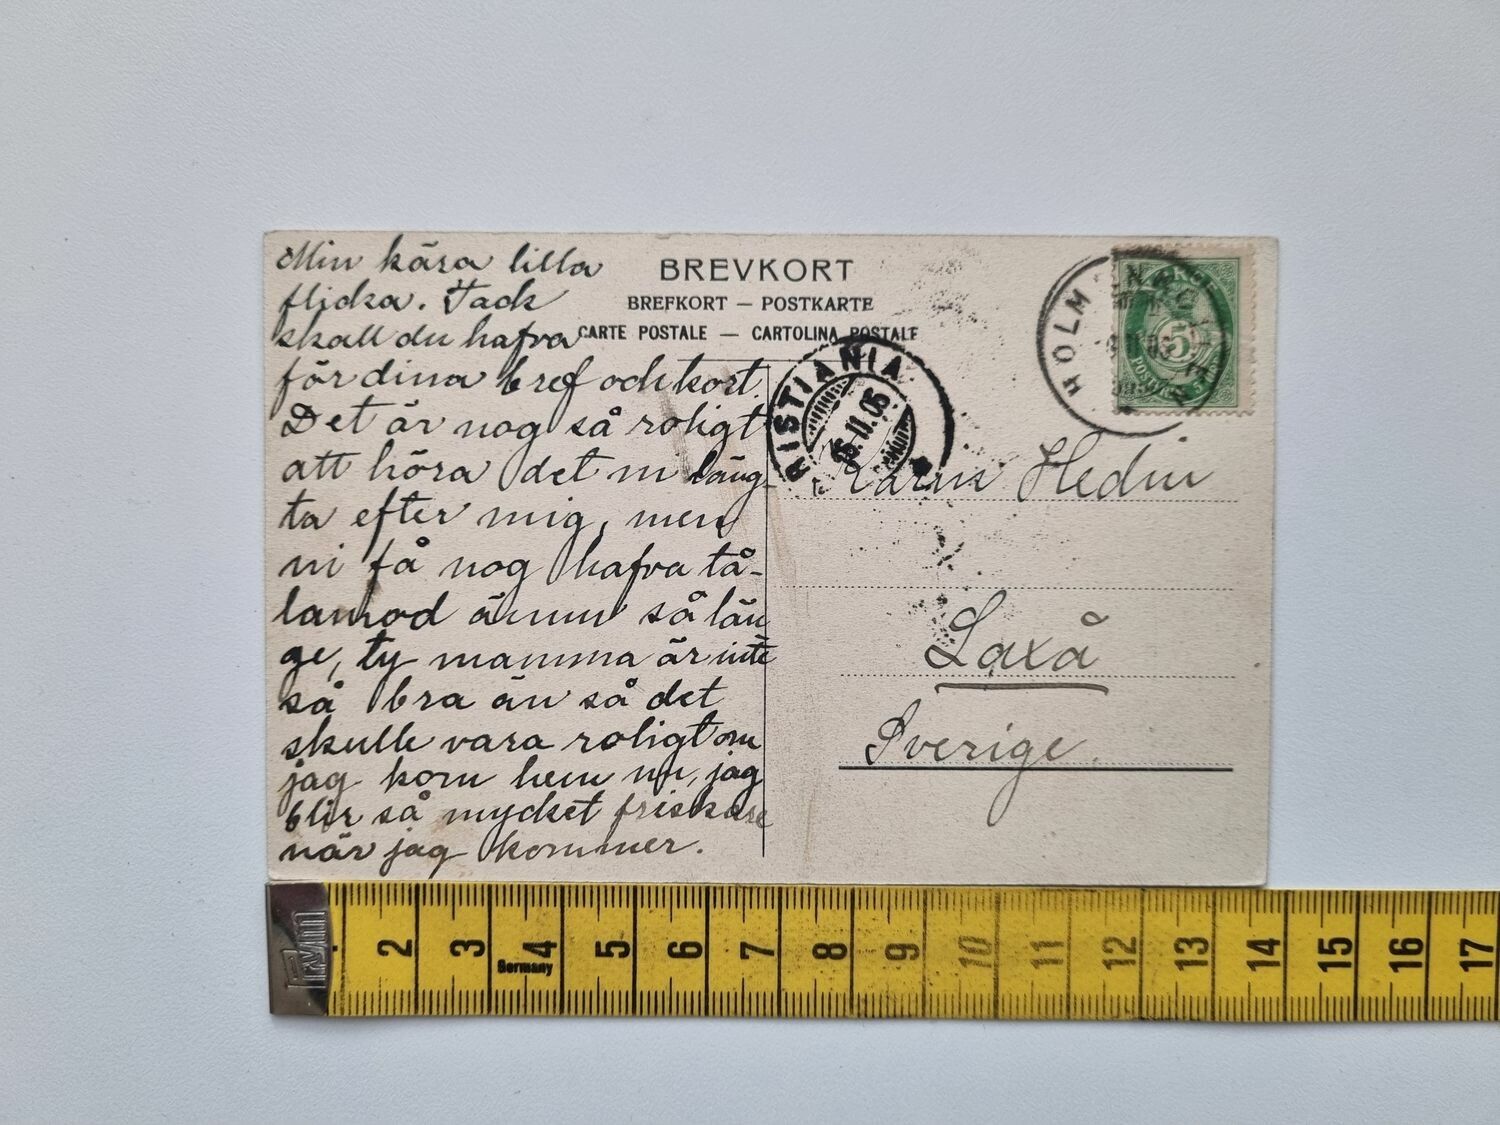 Min kära lilla
flicka. Tack
skall du hafva
för dina bref och kort.
Det är nog så roligt
att höra det ni läng-
ta efter mig, men
ni få nog hafva tå-
lamod ännu så län
ge, ty mamma är inte
så bra än så det
skulle vara roligt om
jag kom hem nu, jag
blir så mycket friskare
när jag kommer.
BREVKORT
BREFKORT — POSTKARTE
CARTE POSTALE — CARTOLINA POSTALE
RISTIANIA
16.II.05
HOLM
5
Karin Hedin
Laxå
Sverige.
2 3 4 5 6 7 8 9 10 11 12 13 14 15 16 17
Germany